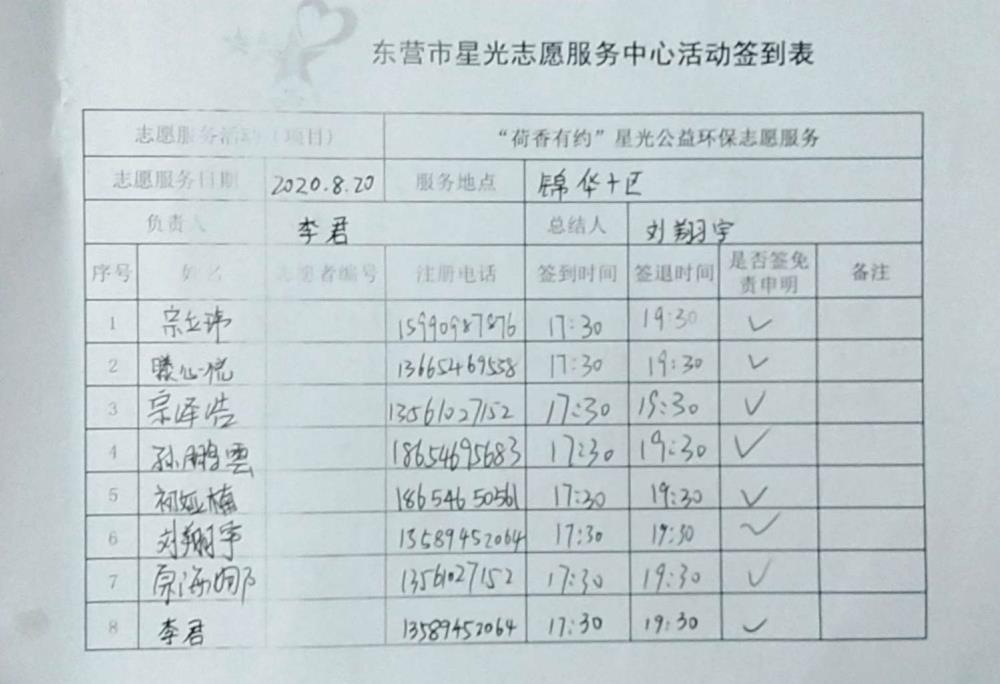 东营市星光志愿服务中心活动签到表
志愿服务活动（项目） “荷香有约”星光公益环保志愿服务
志愿服务日期 2020.8.20 服务地点 锦华十区
负责人 李君 总结人 刘翔宇
序号 姓名 志愿者编号 注册电话 签到时间 签退时间 是否签免责申明 备注
1 宗立玮 15990987876 17:30 19:30 ✓
2 滕心悦 13665469558 17:30 19:30 ✓
3 宗泽浩 13561027152 17:30 19:30 ✓
4 孙鹏雲 18654695683 17:30 19:30 ✓
5 初娅楠 18654650561 17:30 19:30 ✓
6 刘翔宇 13589452064 17:30 19:30 ✓
7 13561027152 17:30 19:30 ✓
8 李君 13589452064 17:30 19:30 ✓